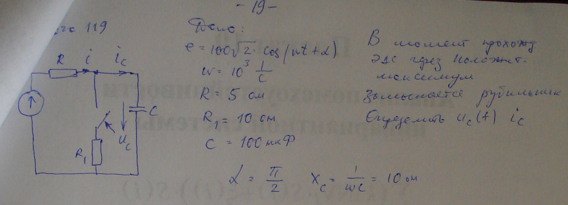 - 19 -
119
Дано:
e = 100√2 · cos(ωt + α)
ω = 10³ 1/c
R = 5 ом
R₁ = 10 ом
C = 100 мкФ
α = π/2 X_C = 1/ωC = 10 ом
В момент проход
ЭДС через положит.
максимум
замыкается рубильник
Определить u_C(t) i_C
R i i_C
C
u_C
R₁